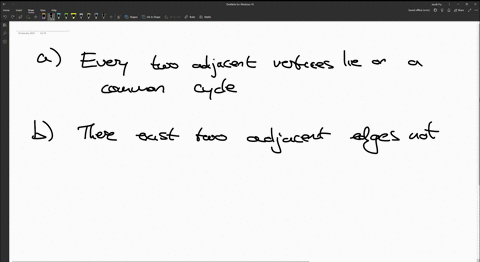 a) Every two adjacent vertices lie on a
common cycle
b) There exist two adjacent edges not